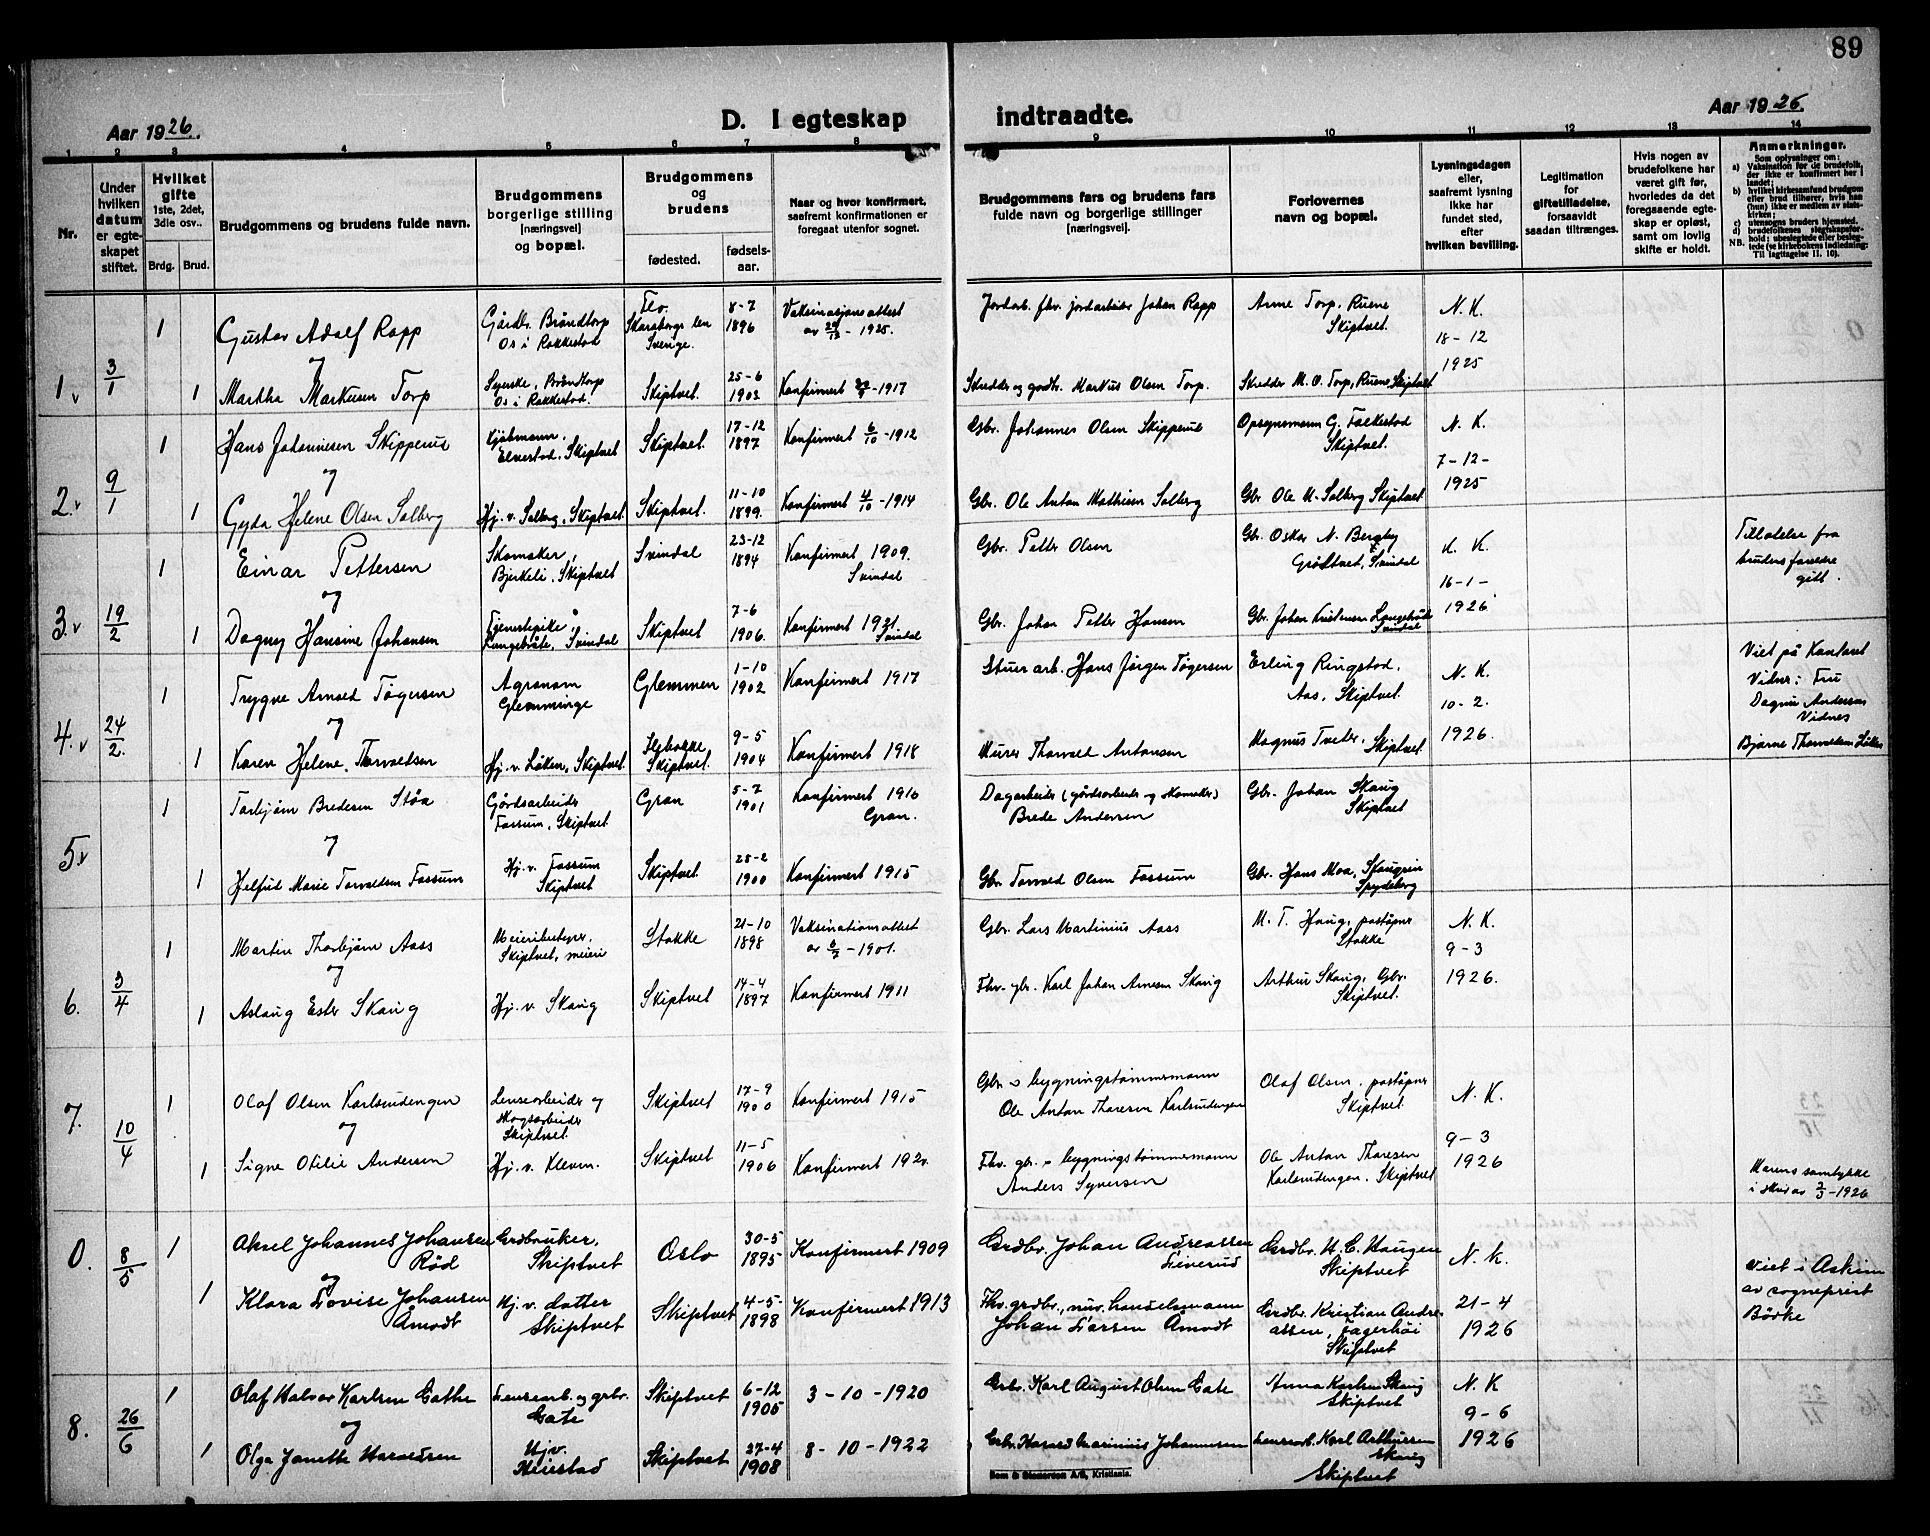 89
Aar 1926.
D. I egteskap
indtraadte.
Aar 1926.
1 2 3 4 5 6 7 8 9 10 11 12 13 14
Nr.
Under hvilken datum er egteskapet stiftet.
Hvilket gifte
1ste, 2det, 3dle osv..
Brdg. Brud.
Brudgommens og brudens fulde navn.
Brudgommens borgerlige stilling [næringsvei] og bopæl.
Brudgommens og brudens
fødested.
fødselsaar.
Naar og hvor konfirmert, saafremt konfirmationen er foregaat utenfor sognet.
Brudgommens fars og brudens fars fulde navn og borgerlige stillinger [næringsvei].
Forlovernes navn og bopæl.
Lysningsdagen eller, saafremt lysning ikke har fundet sted, efter hvilken bevilling.
Legitimation for giftetilladelse, forsaavidt saadan tiltrænges.
Hvis nogen av brudefolkene har været gift før, hvorledes da det foregaaende egteskap er opløst, samt om lovlig skifte er holdt.
Anmerkninger.
Som oplysninger om:
a) Vaksination for de brudefolk, der ikke er konfirmert her i landet;
b) hvilket kirkesamfund brudgom eller brud tilhører, hvis han (hun) ikke er medlem av statskirken;
c) utensogns bruders hjemsted.
d) brudefolkenes slegtskapsforhold; ubeslegtede eller beslegtede (se kirkebokens indledning: Til iagttagelse II. 10).
NB.
1 3/1
1 Gustav Adolf Rapp
Gårdbr. Bråndtorp
Os i Rakkestad
Flo.
Skaraborgs len
Sverige.
8-7
1896
Vaksinasjonsattest
av 29/12 - 1925.
Jordarb. fhv. jordarbeider Johan Rapp
Arne Torp, Ruene
Skiptvet.
N. K.
18-12
1925
og
1 Martha Markusen Torp
Syerske, Bråndtorp
Os i Rakkestad.
Skiptvet.
25-6
1903
Konfirmert - 1917
Skredder og gbr. Markus Olsen Torp.
Skredder M. O. Torp, Ruene, Skiptvet
2. 9/1
1 Hans Johannesen Skipperud
Kjøbmann,
Elvestad, Skiptvet
Skiptvet.
17-12
1897
Konfirmert 6/10 - 1912
Gbr. Johannes Olsen Skipperud
Opsynsmann G. Falkestad
Skiptvet.
N. K.
7-12-
1925
og
1 Gyda Helene Olsen Solberg
Hj. v. Solberg, Skiptvet
Skiptvet.
11-10
1899.
Konfirmert 4/10 - 1914
Gbr. Ole Anton Mathisen Solberg
Gbr. Ole M. Solberg Skiptvet
3. 19/2
1 Einar Pettersen
Skomaker,
Bjerkeli, Skiptvet
Svindal
23-12
1894
Konfirmert 1909.
Svindal
Gbr. Petter Olsen
Gbr. Oskar N. Bergby
Grøstvet, Svindal
N. K.
16-1-
1926
Tillatelse fra
brudens foreldre
gitt.
og
1 Dagny Hansine Johansen
Tjenestepike,
Langebråte, Svindal
Skiptvet
7-6
1906.
Konfirmert 1921.
Svindal
Gbr. Johan Petter Hansen
Gbr. Johan Kristensen Langebråte
Svindal
4. 24/2.
1 Trygve Arnold Tøgersen
Agronom
Glemminge
Glemmen
1-10
1902
Konfirmert 1917
Stuerarb. Hans Jørgen Tøgersen
Erling Ringstad,
Aas, Skiptvet.
N. K.
10-2.
1926.
Viet på Kontoret
Vidner: Fru
Dagny Andersen
Vidnes
Bjarne Thorvaldsen Løken
og
1 Karen Helene Thorvaldsen
Hj. v. Løken, Skiptvet.
Skiptvet.
9-5
1904
Konfirmert 1918
Murer Thorvald Antonsen
Magnus Tveter, Skiptvet.
5.
1 Torbjørn Bredesen Støa
Gårdsarbeider
Fossum, Skiptvet
Gran
5-7
1901
Konfirmert 1916
Gran.
Dagarbeider (gårdsarbeider og skomaker)
Brede Andersen
Gbr. Johan Skaug
Skiptvet
og
1 Helfrid Marie Torvaldsen Fossum
Hj. v. Fossum
Skiptvet
Skiptvet
28-2
1900
Konfirmert 1915
Gbr. Torvald Olsen Fossum
Gbr. Hans Moa,
Spydeberg
6. 3/4
1 Martin Thorbjørn Aass
Meieribestyrer,
Skiptvet, meieri
Stokke
21-10
1898
Vaksinationsattest
av 6/7 - 1901.
Gbr. Lars Martinius Aass
M. T. Haug, poståpner
Stokke
N. K.
9-3
1926.
og
1 Aslaug Ester Skaug
Hj. v. Skaug
Skiptvet
14-4
1897
Konfirmert 1911
Fhv. gbr. Karl Johan Arnesen Skaug
Arthur Skaug, Gbr.
Skiptvet.
7. 10/4
1 Olaf Olsen Karlsrudengen
Lensearbeider og
skogsarbeider
Skiptvet.
Skiptvet
17-9
1900
Konfirmert 1915
Gbr. o bygningstømmermann
Ole Anton Thoresen Karlsrudengen
Olaf Olsen, poståpner
Skiptvet.
N. K.
9-3
1926
og
1 Signe Otilie Andersen
Hj. v. Kleven.
Skiptvet
11-5
1906
Konfirmert 192
Fhv. gbr. o bygningstømmermann
Anders Syversen
Ole Anton Thoresen
Karlsrudengen, Skiptvet
Morens samtykke
i skriv av 2/3 - 1926
0. 8/5
1 Aksel Johannes Johansen
Rød
Grdbruker,
Skiptvet
Oslo
30-5
1895
Konfirmert 1909
Grdbr. Johan Andreassen
Sieverud
Grdbr. H. C. Haugen
Skiptvet
N. K.
21-4
1926
Viet i Askim
av sogneprest
Børke
og
1 Klara Lovise Johansen
Åmodt
Hj. v. datter
Skiptvet
Skiptvet
4-5-
1898
Konfirmert 1913
Fhv. grdbr., nuv. handelsmann
Johan Larsen Åmodt
Grdbr. Kristian Andre-
assen, Fagerhøi
Skiptvet
8. 26/6
1 Olaf Halvor Karlsen Gathe
Lensearb. og grbr.
Gate
Skiptvet
6-12
1905
3-10-1920
Grbr. Karl August Olsen Gate
Anna Karlsen Skaug
Skiptvet
N. K
9-6
1926
og
1 Olga Janette Haraldsen
Hjv.
Heiestad
Skiptvet
27-4
1908
8-10-1922
Grbr. Harald Marinius Johannesen
Lensearb. Karl Arthursen
Skaug
Skiptvet